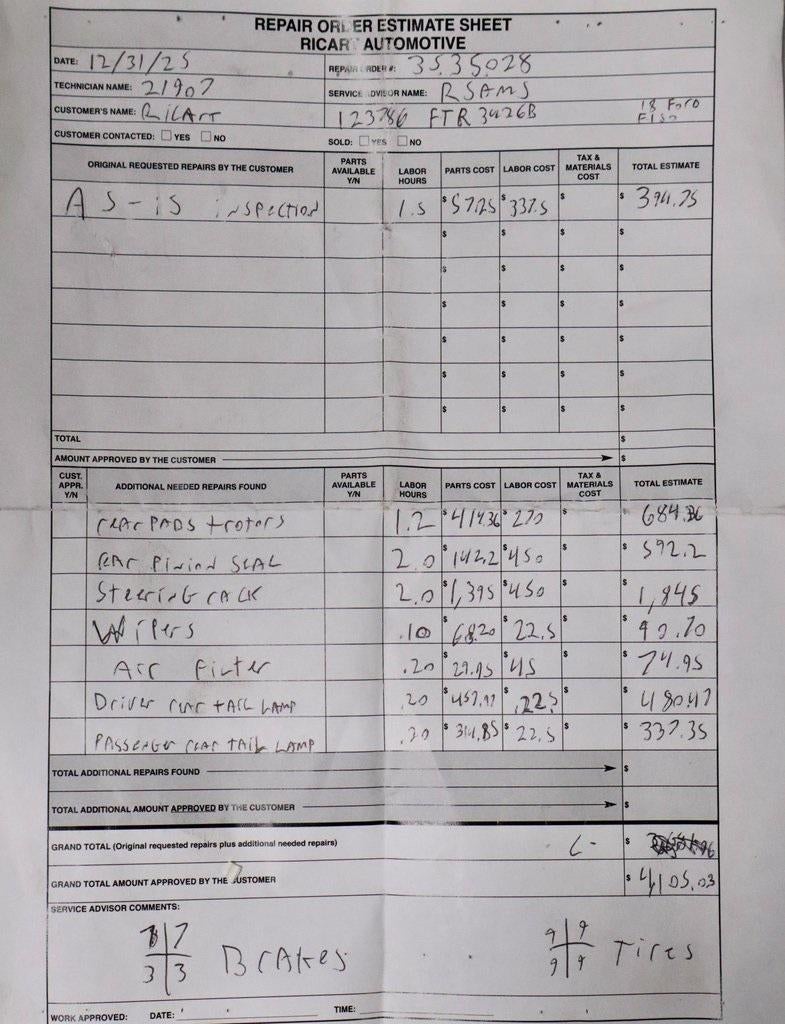 REPAIR ORDER ESTIMATE SHEET
RICART AUTOMOTIVE
DATE: 12/31/25 REPAIR ORDER #: 3535028
TECHNICIAN NAME: 21907 SERVICE ADVISOR NAME: RSAMS
CUSTOMER'S NAME: Ricart 123786 FTR3426B 18 Ford F150
CUSTOMER CONTACTED: YES NO SOLD: YES NO
ORIGINAL REQUESTED REPAIRS BY THE CUSTOMER PARTS AVAILABLE Y/N LABOR HOURS PARTS COST LABOR COST TAX & MATERIALS COST TOTAL ESTIMATE
AS-iS inspection 1.5 $57.25 $337.5 $ $394.75
$ $ $ $
$ $ $ $
$ $ $ $
$ $ $ $
$ $ $ $
$ $ $ $
TOTAL $
AMOUNT APPROVED BY THE CUSTOMER $
CUST. APPR. Y/N ADDITIONAL NEEDED REPAIRS FOUND PARTS AVAILABLE Y/N LABOR HOURS PARTS COST LABOR COST TAX & MATERIALS COST TOTAL ESTIMATE
rear PADS + rotors 1.2 $414.36 $270 $ 684.36
REAR Pinion SEAL 2.0 $142.2 $450 $ $592.2
Steering rack 2.0 $1,395 $450 $ $1,845
Wipers .10 $68.20 $22.5 $ $90.70
Air Filter .20 $29.95 $45 $ $74.95
Driver rear tail LAMP .20 $457.97 $22.5 $ $480.47
PASSENGER rear tail LAMP .20 $314.85 $22.5 $ $337.35
TOTAL ADDITIONAL REPAIRS FOUND $
TOTAL ADDITIONAL AMOUNT APPROVED BY THE CUSTOMER $
GRAND TOTAL (Original requested repairs plus additional needed repairs) $
GRAND TOTAL AMOUNT APPROVED BY THE CUSTOMER $4,105.03
SERVICE ADVISOR COMMENTS:
7 9 9
3 3 Brakes 9 9 Tires
WORK APPROVED: DATE: TIME: